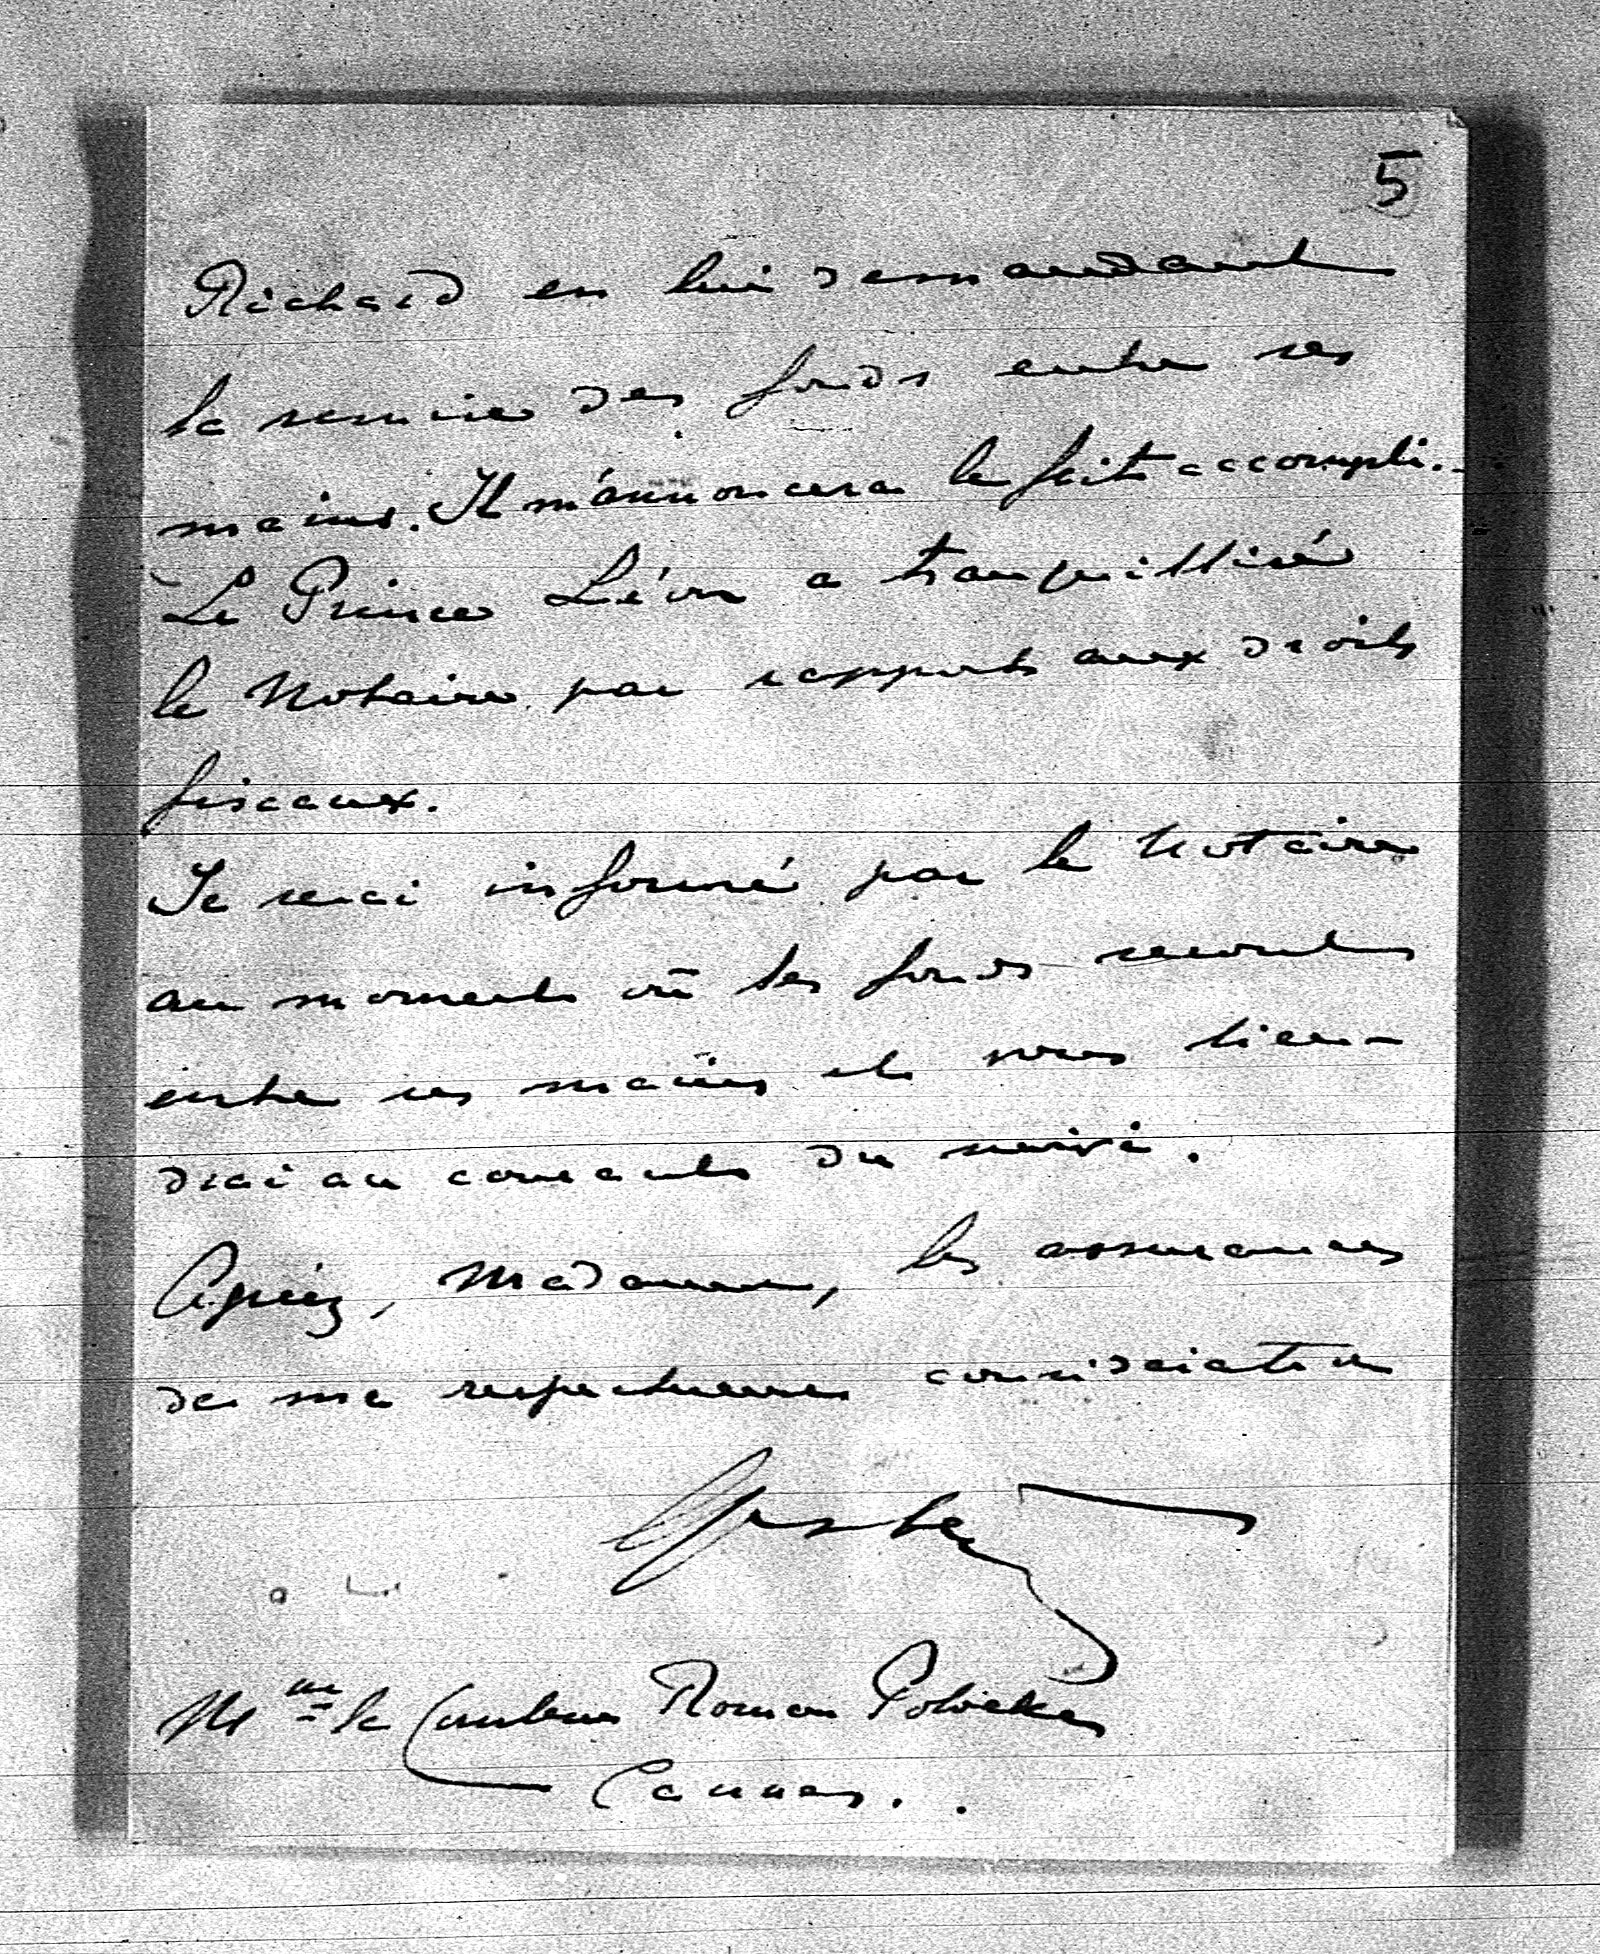 5
Richard en lui demandant
la remise des fonds entre ses
mains. Il m'annoncera le fait accompli.
Le Prince Léon a tranquillisé
le Notaire par rapport aux droits
fiscaux.
Je serai informé par le Notaire
au moment où les fonds seront
entre ses mains et vous tien-
drai au courant du suivi.
Agréez, Madame, les assurances
de ma respectueuse considération
Mme la Comtesse Roman Potocka
Cannes.